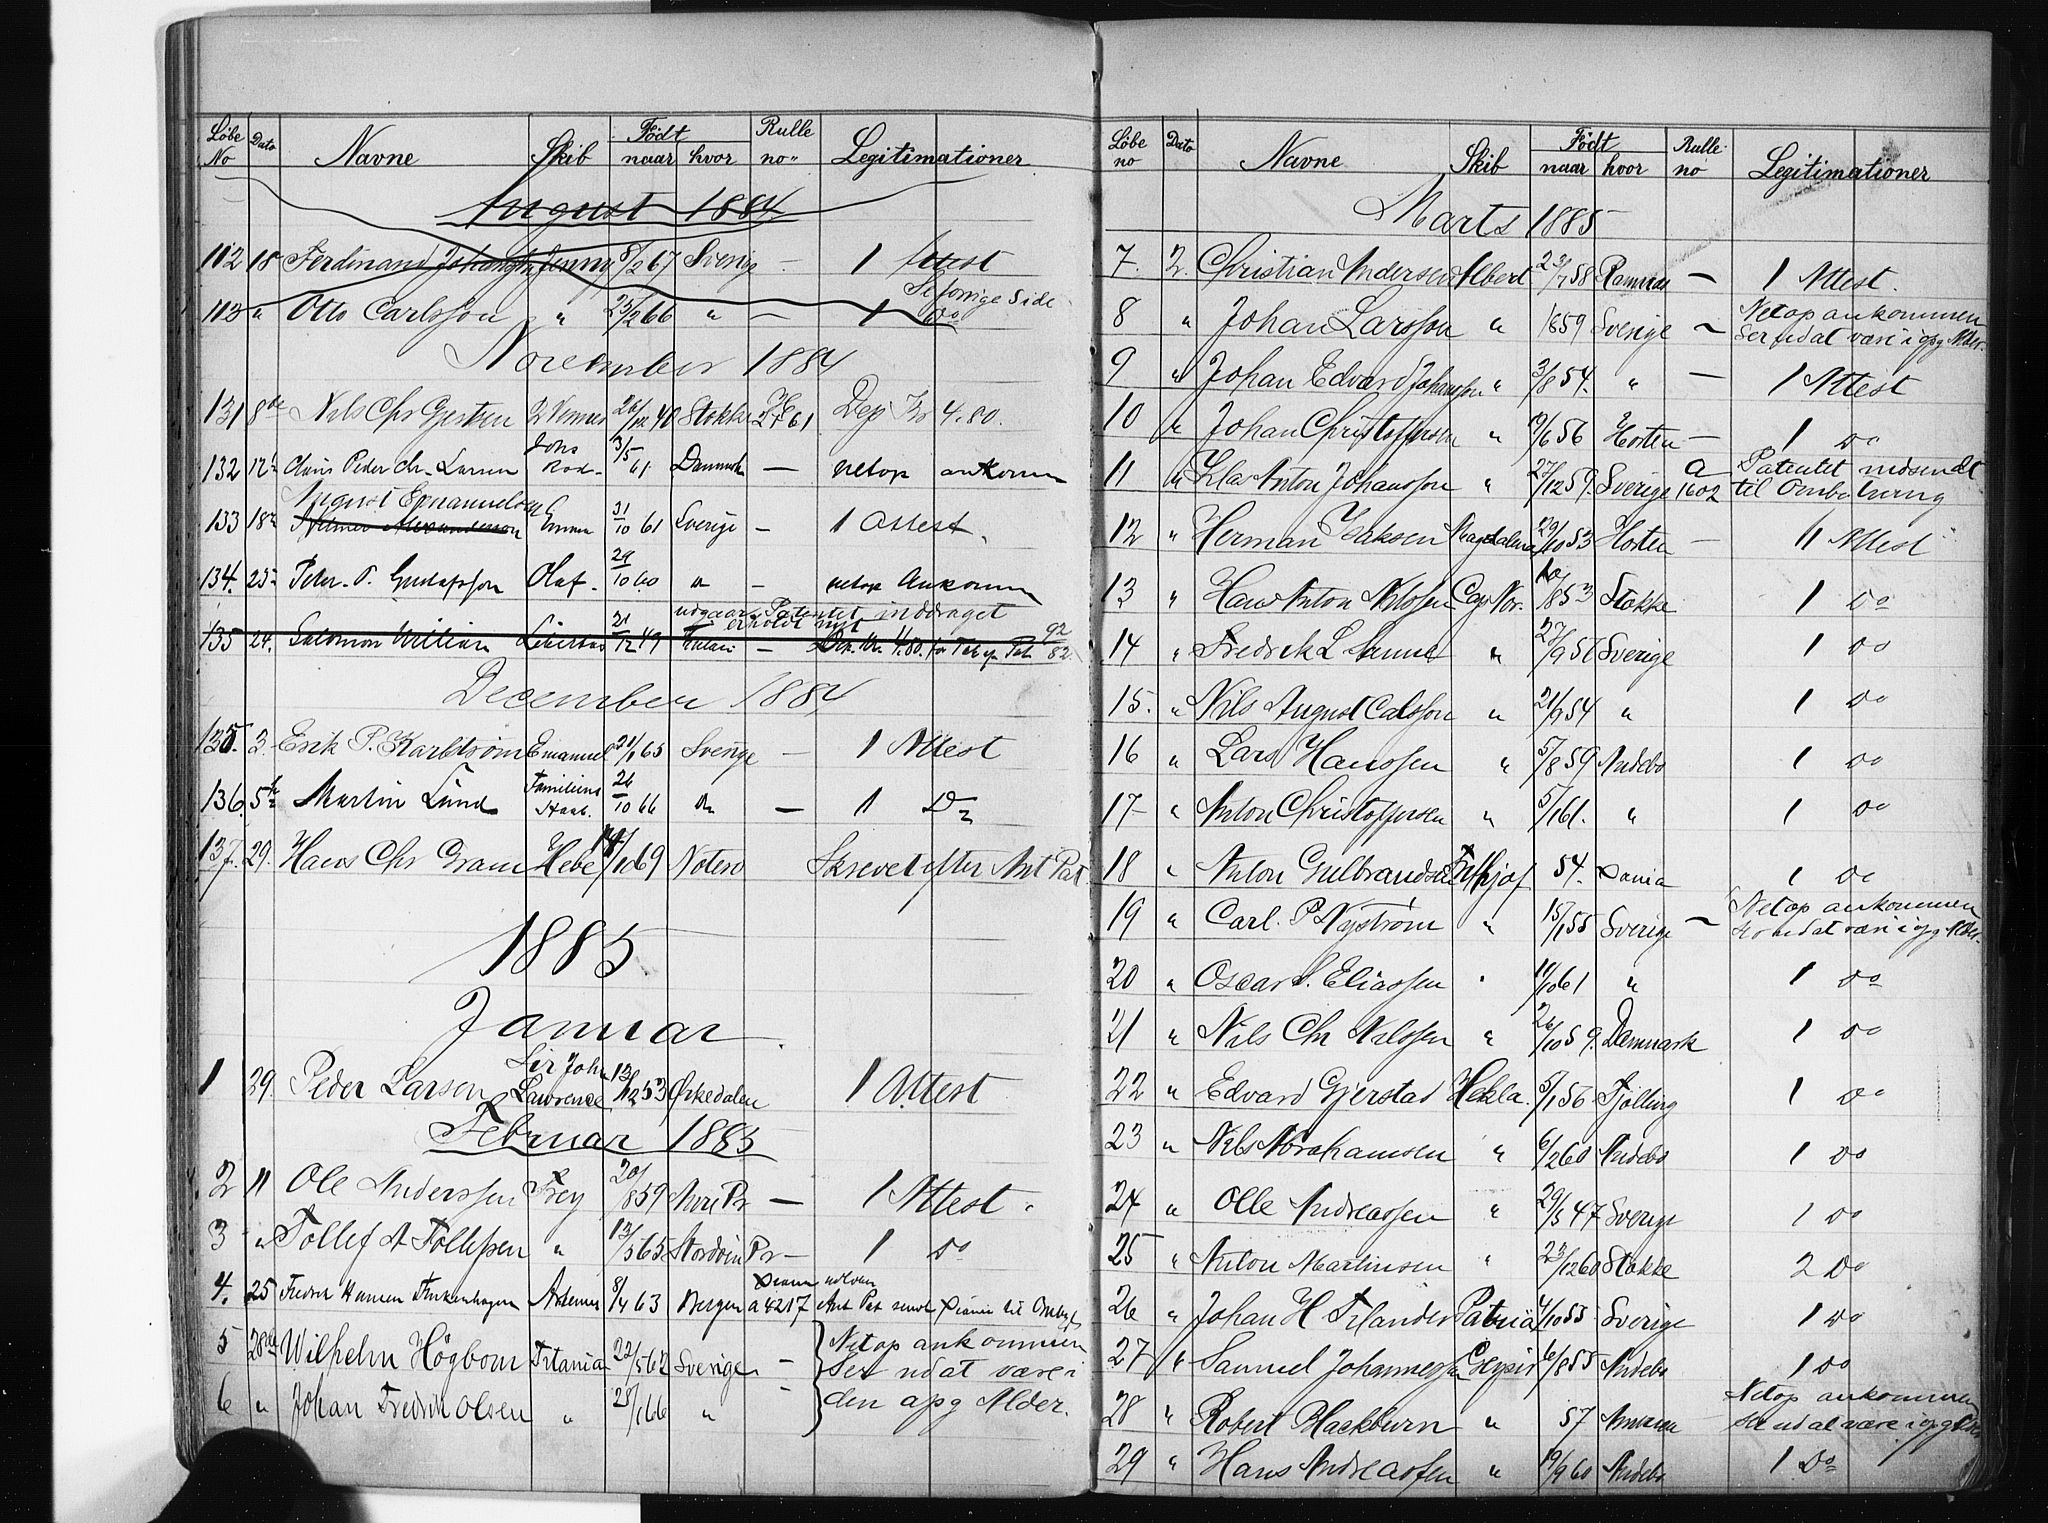 Løbe No Dato Navne Skib Født naar hvor Rulle no Legitimationer
August 1884
112 18 Ferdinand Johansen Jenny 8/2 67 Sverig — 1 Attest
Se forrige Side
113 " Otto Carlsson " 25/2 66 " — 1 Do
November 1884
131 8de Nils Chr Gjertsen 26/12 40 Stokke 2761 Dep Kr 4.80.
132 12te Peder Chr. Larsen Danmark — netop ankommen
August Emanuelson
133 18de 31/10 61 Sverige — 1 Attest.
134. 25 Peter. P. Gustafsson Olaf. 29/10 60 " — netop Ankommen
udgaar, Patentet inddraget
erholdt nyt
135 24. Salomon William Libertas 21/12 49 — Dep. Kr. 4.80 for Tab af Pat 92/82
December 1884
135. 3. Erik P. Karlstrøm Emanuel 21/1 65 Sverige — 1 Attest
136. 5te Martin Lund Familiens Haab. 26/10 66 " — 1 Do
137. 29. Hans Chr Gram Hebe 69 Noterø Skrevet efter Ant Pat
1885
Januar.
1 29. Peder Larsen Sir John Lawrence 13/12 53 Ørkedalen 1 Attest
Februar 1885
2 11 Ole Anderssen Frey 20/8 59 — 1 Attest.
3 " Tollef A Tollefsen " 13/5 65 — 1 Do
4. 25 Fredrik Hansen Artemis 8/4 63 Bergen a 4217 Ant Pat sendt
5 28de Wilhelm Högbom Titania 22/5 62 Sverige — Netop ankommen
Ser ud at være i
6 " Johan Fredrik Olsen " 25/1 66 " " den opg Alder.
Løbe no Dato Navne Skib Født naar hvor Rulle no Legitimationer
Marts 1885
7. 2. Christian Andersen Albert 23/7 58 Ramnæs — 1 Attest.
8 " Johan Larsson " 1859 Sverige — Netop ankommen
Ser ud at være i opg Alder.
9 " Johan Edvard Johansson " 3/8 54. " — 1 Attest
10 " Johan Christoffersen " 6 56 Horten — 1 Do
11 " Klas Anton Johansson " 27/12 59. Sverige a 1602 Patentet indsendt
til Ombytning
12 " Herman Isaksen Magdalena 29/10 53 Horten — 1 Attest
13 " Hans Anton Nilssen Cap Nor. 10/8 53 Stokke 1 Do
14 " Fredrik L " 27/9 56 Sverige 1 Do
15. " Nils August Calsson " 21/9 54 " 1 Do
16 " Lars Hanssen " 5/8 59 Andebo 1 Do
17 " Anton Christoffersen " 5/1 61. " 1 Do
18 " Anton Gulbrandsen Frithjof 54. 1 Do
19 " Carl. P Nyström " 15/1 55 Sverige — Netop ankommen
Ser ud at være i opg Alder.
20 " Oscar S. Eliassen " 11/10 61 " 1 Do
21 " Nils Chr Nilssen " 26/10 59. Danmark 1 Do
22 " Edvard Gjerstad Hekla. 5/1 56 Tjølling 1 Do
23 " Nils Abrahamsen " 6/2 60 Andebo 1 Do
24 " Olle Andreassen " 29/3 47 Sverige 1 Do
25 " Anton Martinsen " 23/12 60 Stokke 2 Do
26 " Johan H Patria 4/10 55 Sverige 1 Do
27 " Samuel Johannessen Geysir 6/8 55 Andebo 1 Do
28 " Robert Blackburn " 57 Netop ankommen
Ser ud at være i opg Alder
29 " Hans Andreassen " 19/9 60 Andebo 1 Do